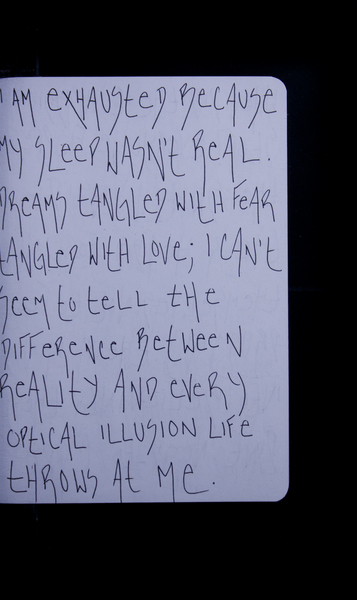 I AM EXHAUSTED BECAUSE
MY SLEEP WASN'T REAL.
DREAMS TANGLED WITH FEAR
TANGLED WITH LOVE; I CAN'T
SEEM TO TELL THE
DIFFERENCE BETWEEN
REALITY AND EVERY
OPTICAL ILLUSION LIFE
THROWS AT ME.